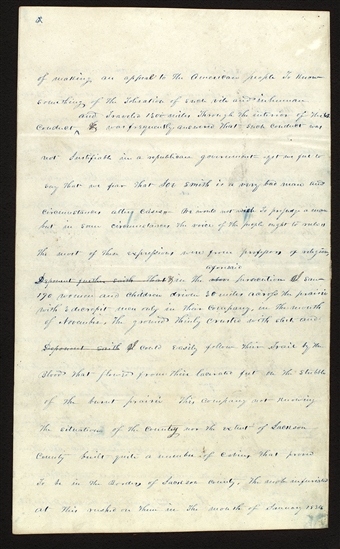 3.
of making an appeal to the American people To Know
something of the Toleration of such vile and inhuman
and Traveled 1300 miles Through the interior of the
Conduct, & was frequently answered That such conduct was
not Justifiable in a republican government yet we feel to
say that we fear that Joe Smith is a very bad man and
circumstances alter Cases. We would not wish To prejudge a man
but in some circumstances the voice of the people ought to rule
the most of these expressions were from professors of religion
aforesaid
Deponent further saith That in the persecution I saw
190 women and children driven 30 miles across the prairie
with 3 decrepit men only in their company, in the month
of November, the ground thinly crusted with sleet and
Deponent saith I could easily follow their Trail by the
blood that flowed from their lacerated feet on the stubble
of the burnt prairie This company not knowing
the situation of the County nor the extent of Jackson
County built quite a number of Cabins That proved
To be in the Borders of Jackson County, The mob infuriated
at This rushed on them in The month of January 1834